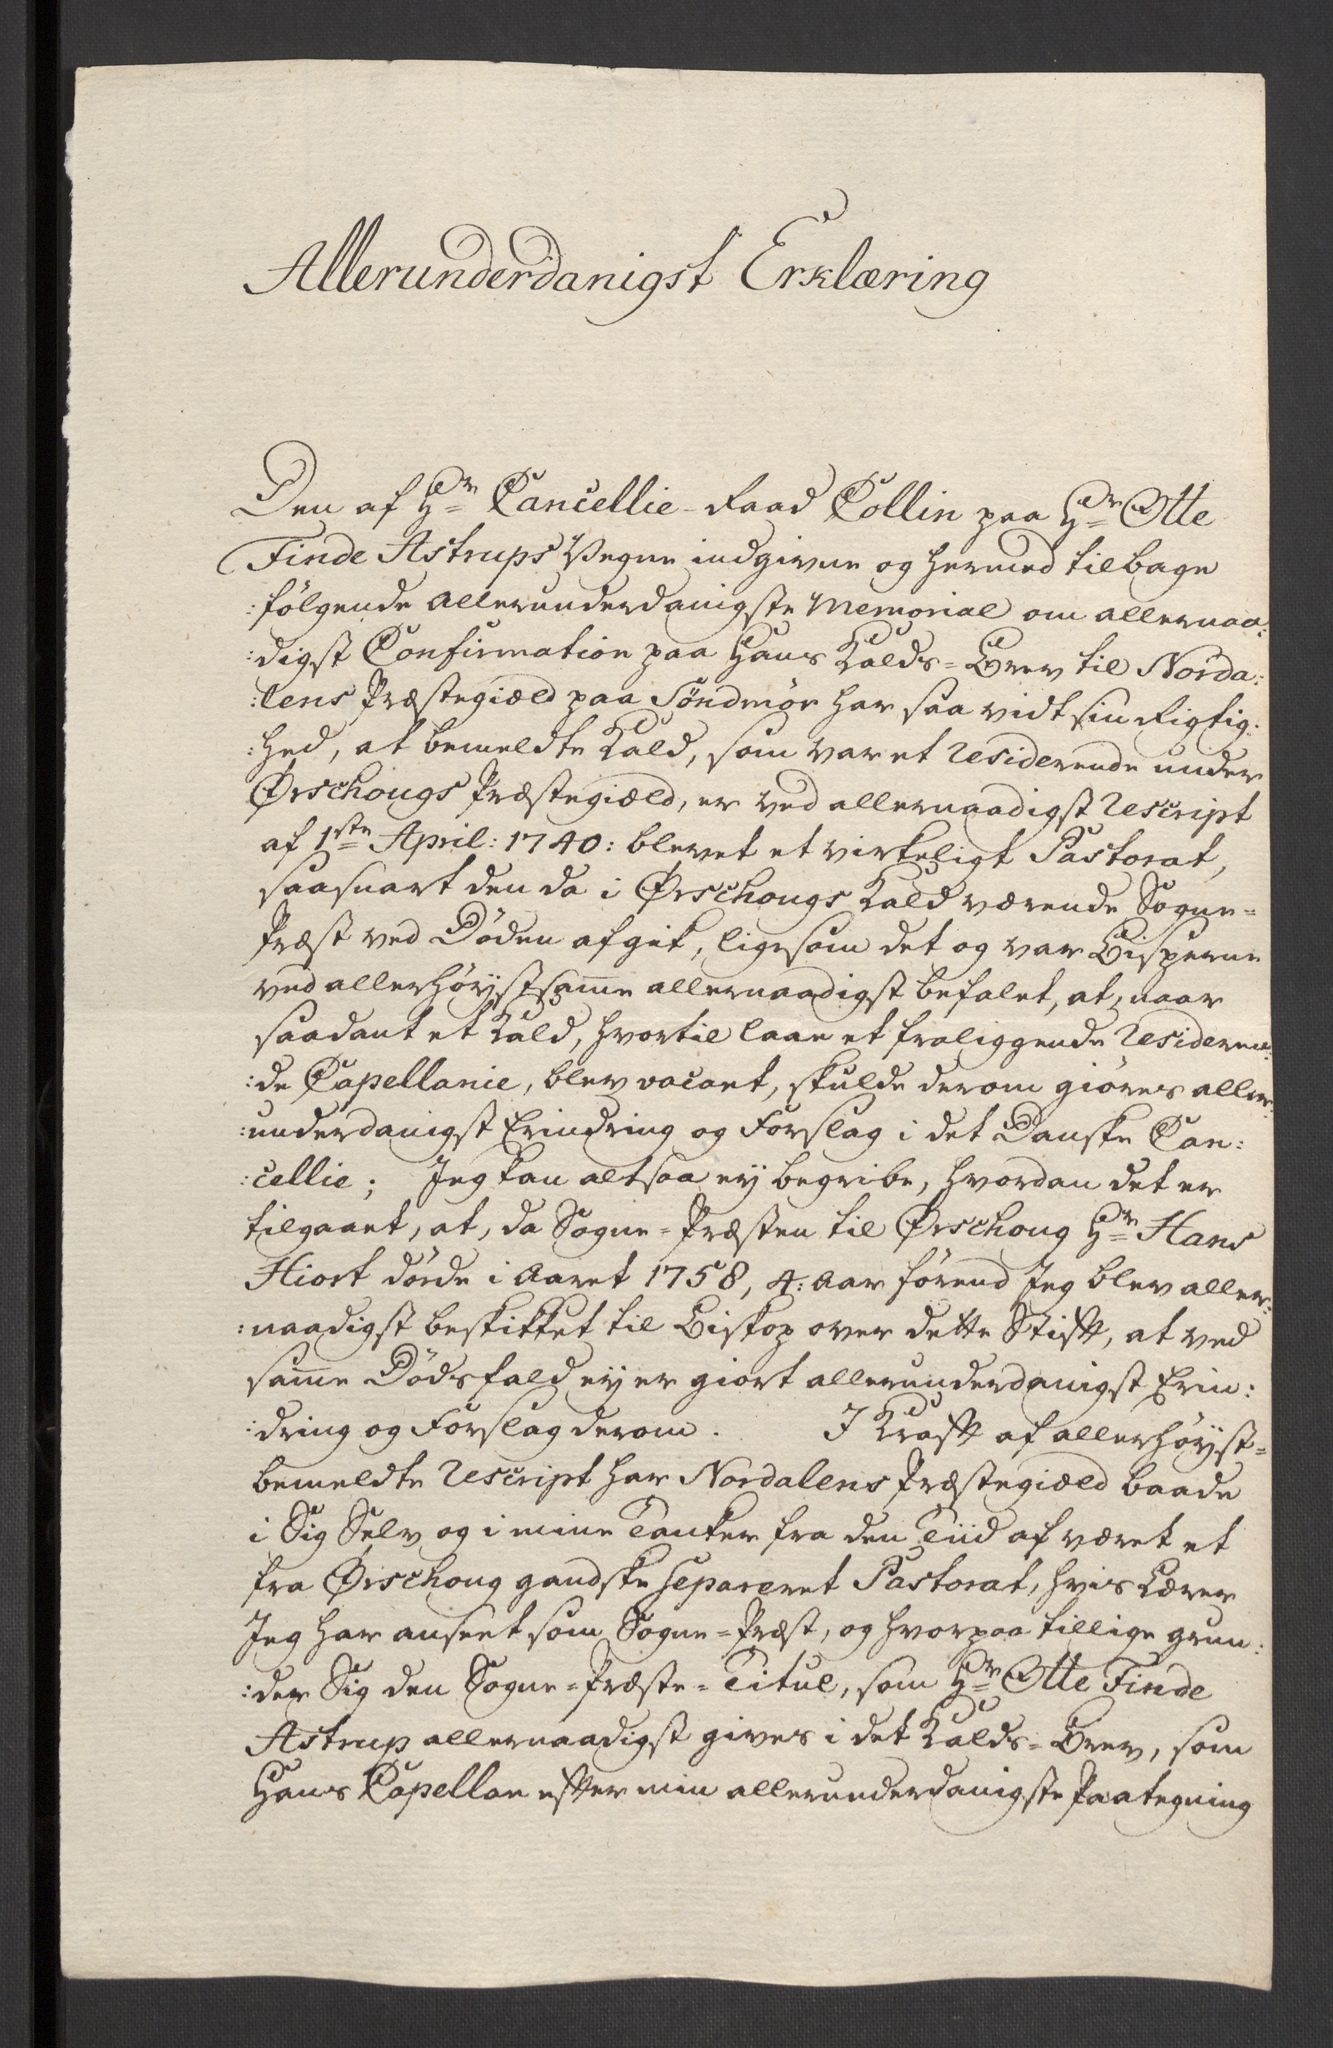 Allerunderdanigst Erklæring
Den af Hr Cancellie-Raad Collin paa Hr Otte
Finde Astrups Vegne indgivne og hermed tilbage
:følgende allerunderdanigste Memorial om allernaa:
:digst Confirmation paa Hans Kalds-Brev til Norda:
:lens Præstegiæld paa Søndmør har saa vidt sin Rigtig:
:hed, at bemeldte Kald, som var et residerende under
Ørschougs Præstegiæld, er ved allernaadigst Rescript
af 1ste April: 1740: blevet et virkeligt Pastorat,
saasnart den da i Ørschougs Kald værende Sogne-
Præst ved Døden afgik, ligesom det og var Bisperne
ved allerhøystsam̄e allernaadigst befalet, at, naar
saadant et Kald, hvortil laae et fraliggende Residere͞n:
:de Capellanie, blev vacant, skulde derom giøres aller:
:underdanigst Erindring og Forslag i det Danske Can:
:cellie; Jeg kan altsaa ey begribe, hvordan det er
tilgaaet, at, da Sogne-Præsten til Ørschoug Hr Hans
Hiort døde i Aaret 1758, 4: Aar førend Jeg blev aller:
:naadigst beskikket til Biskop over dette Stift, at ved
sam̄e Dødsfald ey er giort allerunderdanigst Erin:
:dring og Forslag derom. I Kraft af allerhøyst-
bemeldte Rescript har Nordalens Præstegiæld baade
i Sig Selv og i mine Tanker fra den Tiid af været et
fra Ørschoug gandske separeret Pastorat, hvis Lærer
Jeg har anseet som Sogne-Præst, og hvorpaa tillige grun:
:der Sig den Sogne-Præste-Titul, som Hr Otte Finde
Astrup allernaadigst gives i det Kalds-Brev, som
Hans Capellan efter min allerunderdanigste Paategning